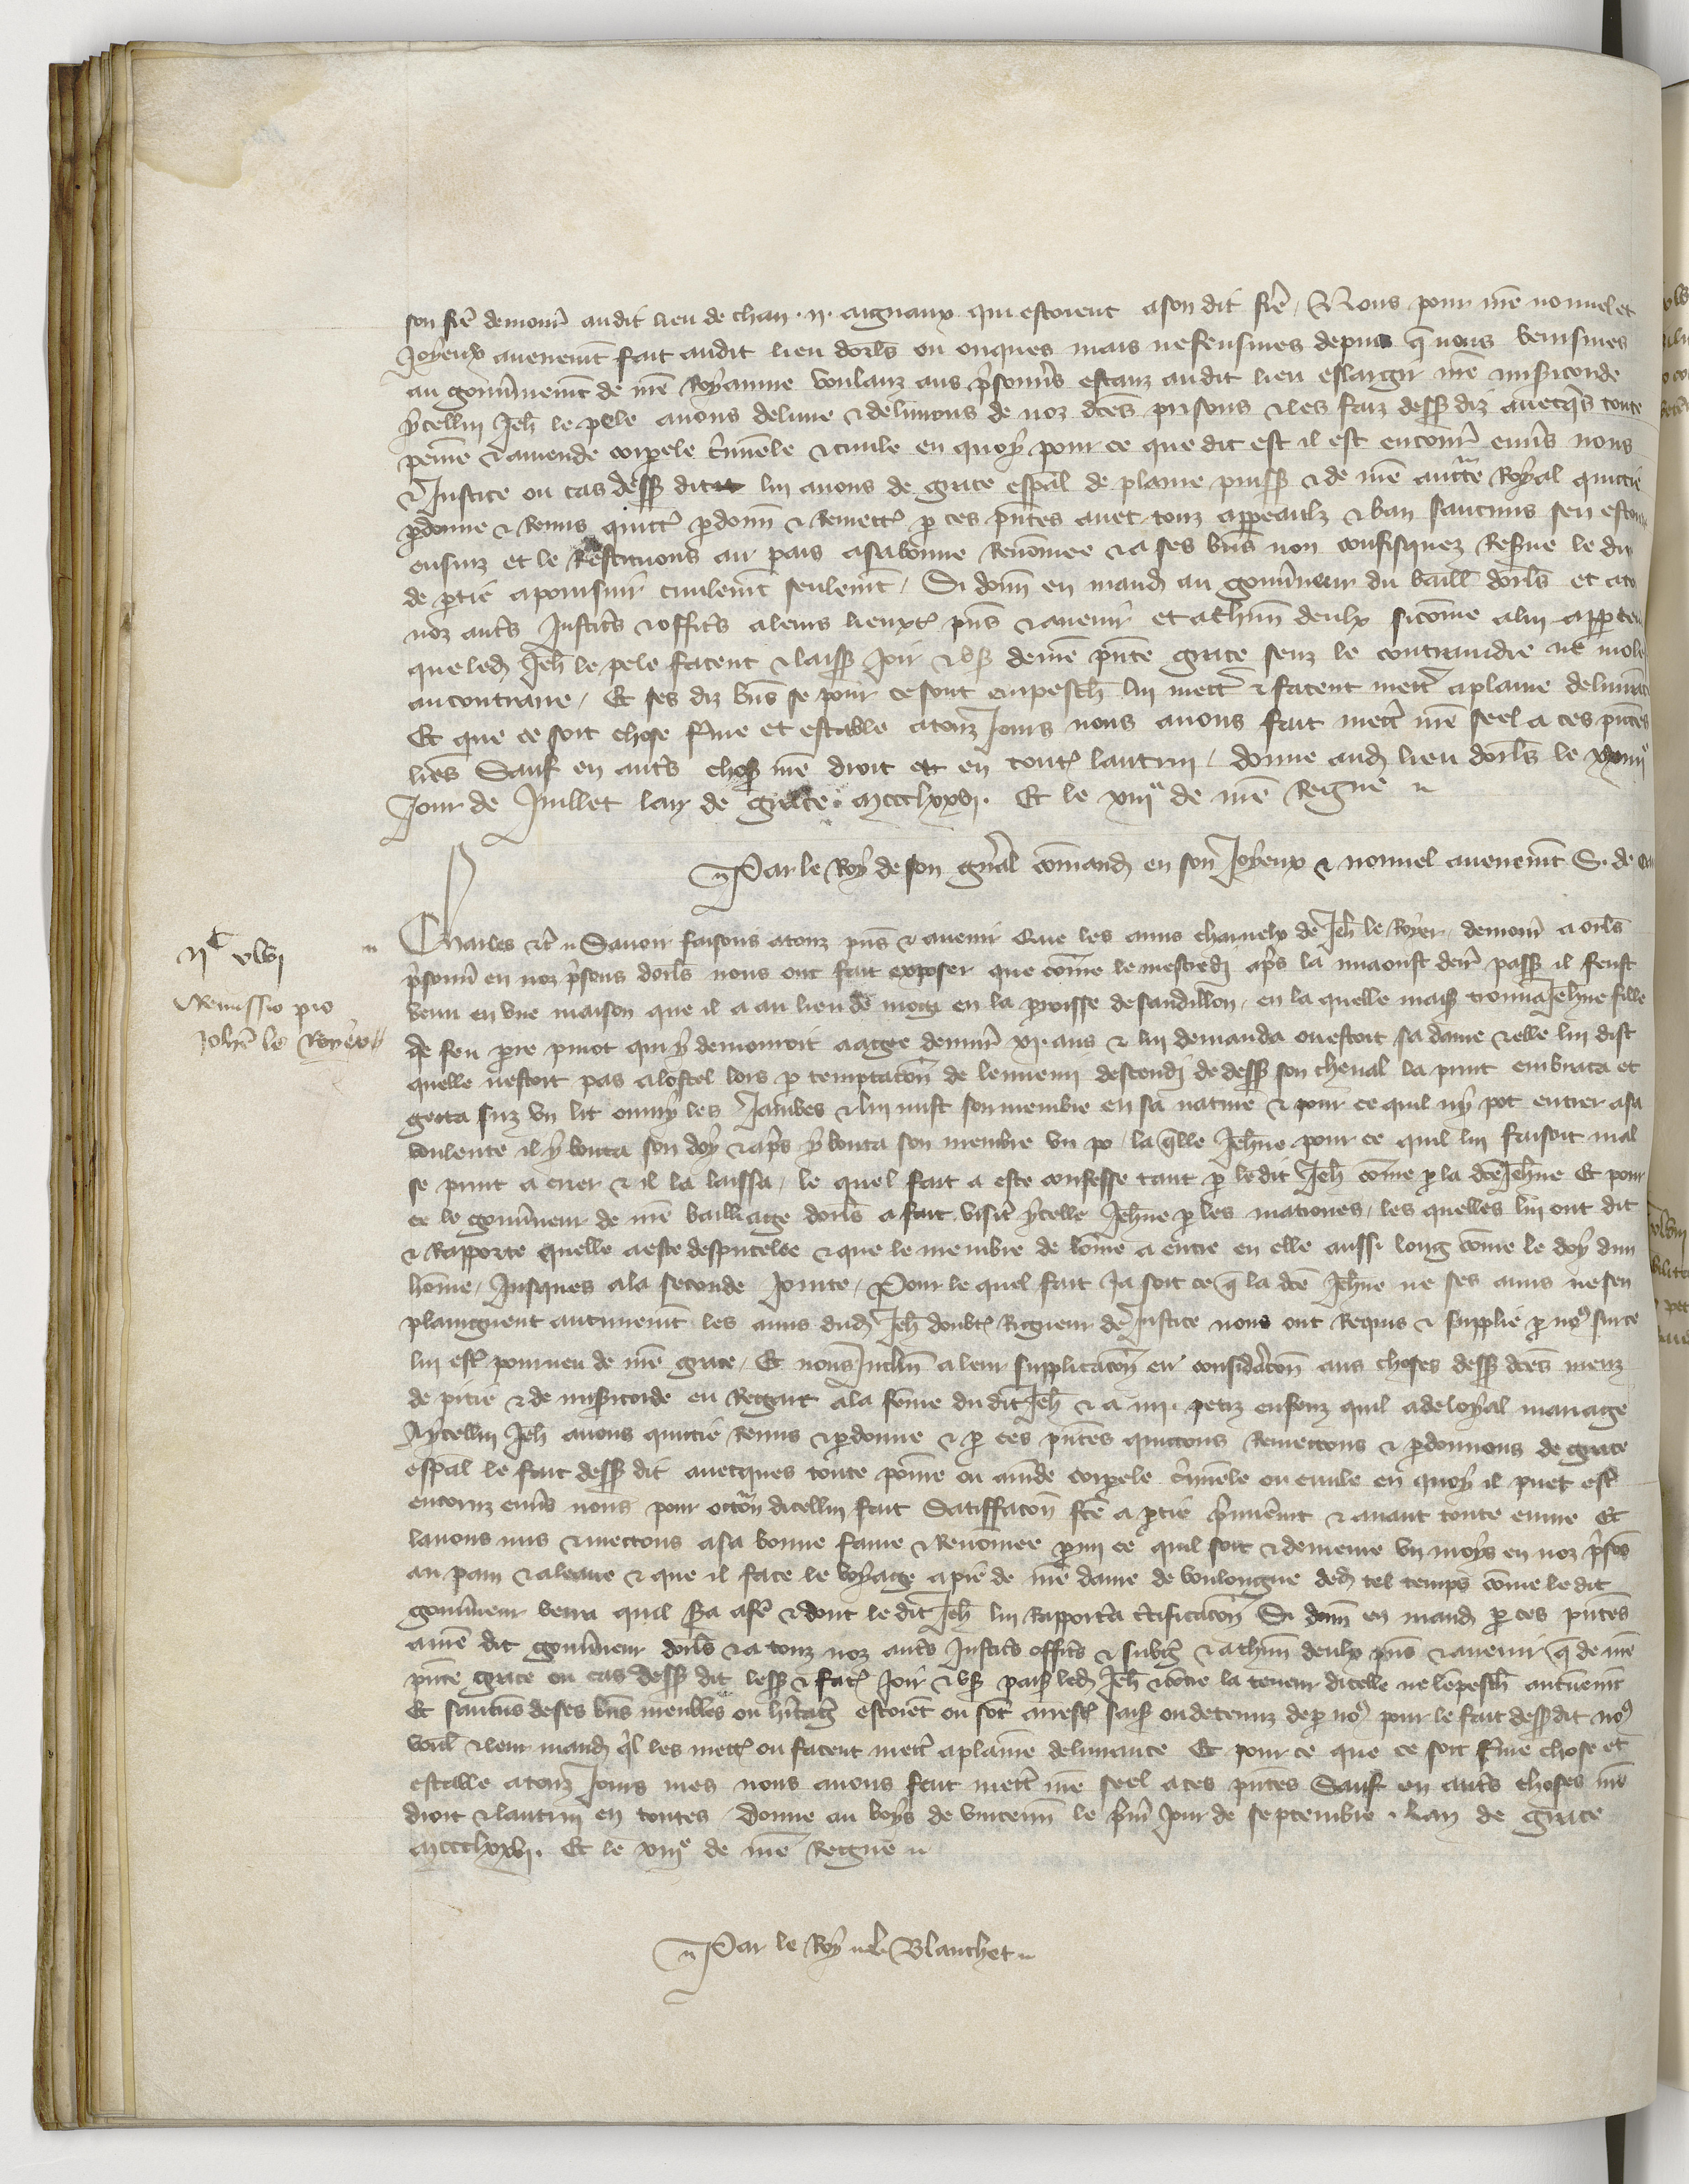 son sire demour audit lieu de chan .ii. aignaux qui estoient a son dit sire, Nous pour nre nouvel et
Joyeux avenemt fait audit lieu dorls ou onques mais ne feusmes depuis q nous venismes
au gouvnemt de nre Royaume voulanz aus prsonns estanz audit lieu eslargir nre misicorde
ycellui Jeh le pele avons delivre & delivrons de noz dces prisons & les faiz dess diz avecqs toute
peine & amende corpele crimele & civile en quoy pour ce que dit est il est encour envs nous
& Justice ou cas dess dit lui avons de grace espal de plaine puiss & de nre auctte Royal quictie
pdonne & Remis quitt pdonn & Remett p ces pntes avec touz appeaulz & ban saucuns sen estoient
ensuiz et le Restituons au pais a sa bonne Renomee & a ses bns non confisquez Resve le dr
de ptie a poursuir civilemt seulemt, Si donn en mand au gouvneur du baill dorls et a to
noz auts Justics & offics a leurs lieuxt pns & avenir et a chun deulx sicome a lui apptend
que led Jeh le pele facent & laiss Joir & us de nre pnte grace senz le contraindre ne mole
au contraire, Et ses diz bns se pour ce sont empesch lui mett & facent mett a plaine delivrace
Et que ce soit chose ferme et estable a touz Jours nous avons fait mett nre seel a ces pntes
lres Sauf en auts chos nre droit et en tout lautrui, donne aud lieu dorls le xxiiije
Jour de Juillet lan de grace mccclxxvj. Et le xiije de nre Regne
Par le Roy de son gnral comand en son Joyeux & nouvel avenemt S. de
ijC xlvj
Remissio pro
Johe le Royer
Charles &c Savoir faisons a touz pns & avenir Que les amis charnelx de Jeh le Royer, demour a orls
prsonn en noz prsons dorls nous ont fait exposer que come le mescredj aprs la miaoust derr pass il feust
venu en une maison que il a au lieu de moctz en la proisse de sandillon, en la quelle mais trouva Jehne fille
de feu pre pinot qui y demouroit aagee denvir xj. ans & lui demanda ou estoit sa dame & elle lui dist
quelle nestoit pas a lostel lors p temptacon de lennemi descendj de dess son cheval la print embraca et
gecta suz un lit ouvry les Jambes & lui mist son membre en sa nature & pour ce quil ny pot entrer a sa
voulente il y bouta son doy & aprs y bouta son membre un po, la qlle Jehne pour ce quil lui faisoit mal
se print a crier & il la laissa, le quel fait a este confesse tant p ledit Jeh come p la dce Jehne Et pour
ce le gouvneur de nre bailliage dorls a fait visit ycelle Jehne p les matrones, les quelles lui ont dit
& Rapporte quelle a este despucelee & que le membre de lome a entre en elle aussi long come le doy dun
home, Jusques a la seconde Jointe, Pour le quel fait Ja soit ce q la dce Jehne ne ses amis ne sen
plaingnent aucunemt les amis dud Jeh doubt Rigueur de Justice nous ont Requis & supplie p nos sur ce
lui est pourveu de nre grace, Et nous Inclin a leur supplicacon eu consideracon aus choses dess dces meuz
de pitie & de misicorde en Regart a la feme du dit Jeh & a iiij. petiz enfenz quil a de loyal mariage
A ycellui Jeh avons quictie Remis & pdonne & p ces pntes quictons Remectons & pdonnons de grace
espal le fait dess dit avecques toute peine ou amde corpele crimele ou civile en quoy il puet est
encoruz envs nous pour occon dicellui fait Satiffacon fce a ptie prmiemt & avant toute euvre Et
lavons mis & mectons a sa bonne fame & Renomee pmi ce quil soit & demeure un moys en noz prsos
au pain & a leaue & que il face le voyage a pie de nre dame de boulongne ded tel temps come le dit
gouvneur verra quil sra a fe & dont le dit Jeh lui Rapporta ctificacon Si donn en mand p ces pntes
a nre dit gouvneur dorls & a touz noz auts Justics offics & subgz & a chun deulx pns & avenir q de nre
pnte grace ou cas dess dit less & fact Joir & us paisb led Jeh & contre la teneur dicelle ne lepesch aucunemt
Et saucus de ses bns meubles ou hitag estoiet ou sot arrest sais ou detenuz de p nos pour le fait dess dit nos
voul & leur mand ql les mett ou facent mett a plaine delivrance Et pour ce que ce soit ferme chose et
estable a touz Jours mes nous avons fait mett nre seel a ces pntes Sauf en auts choses nre
droit & lautrui en toutes, Donne au boys de vincenn le prm Jour de septembre. lan de grace
mccclxxvj. Et le xiije de nre Regne
Par le Roy Blanchet